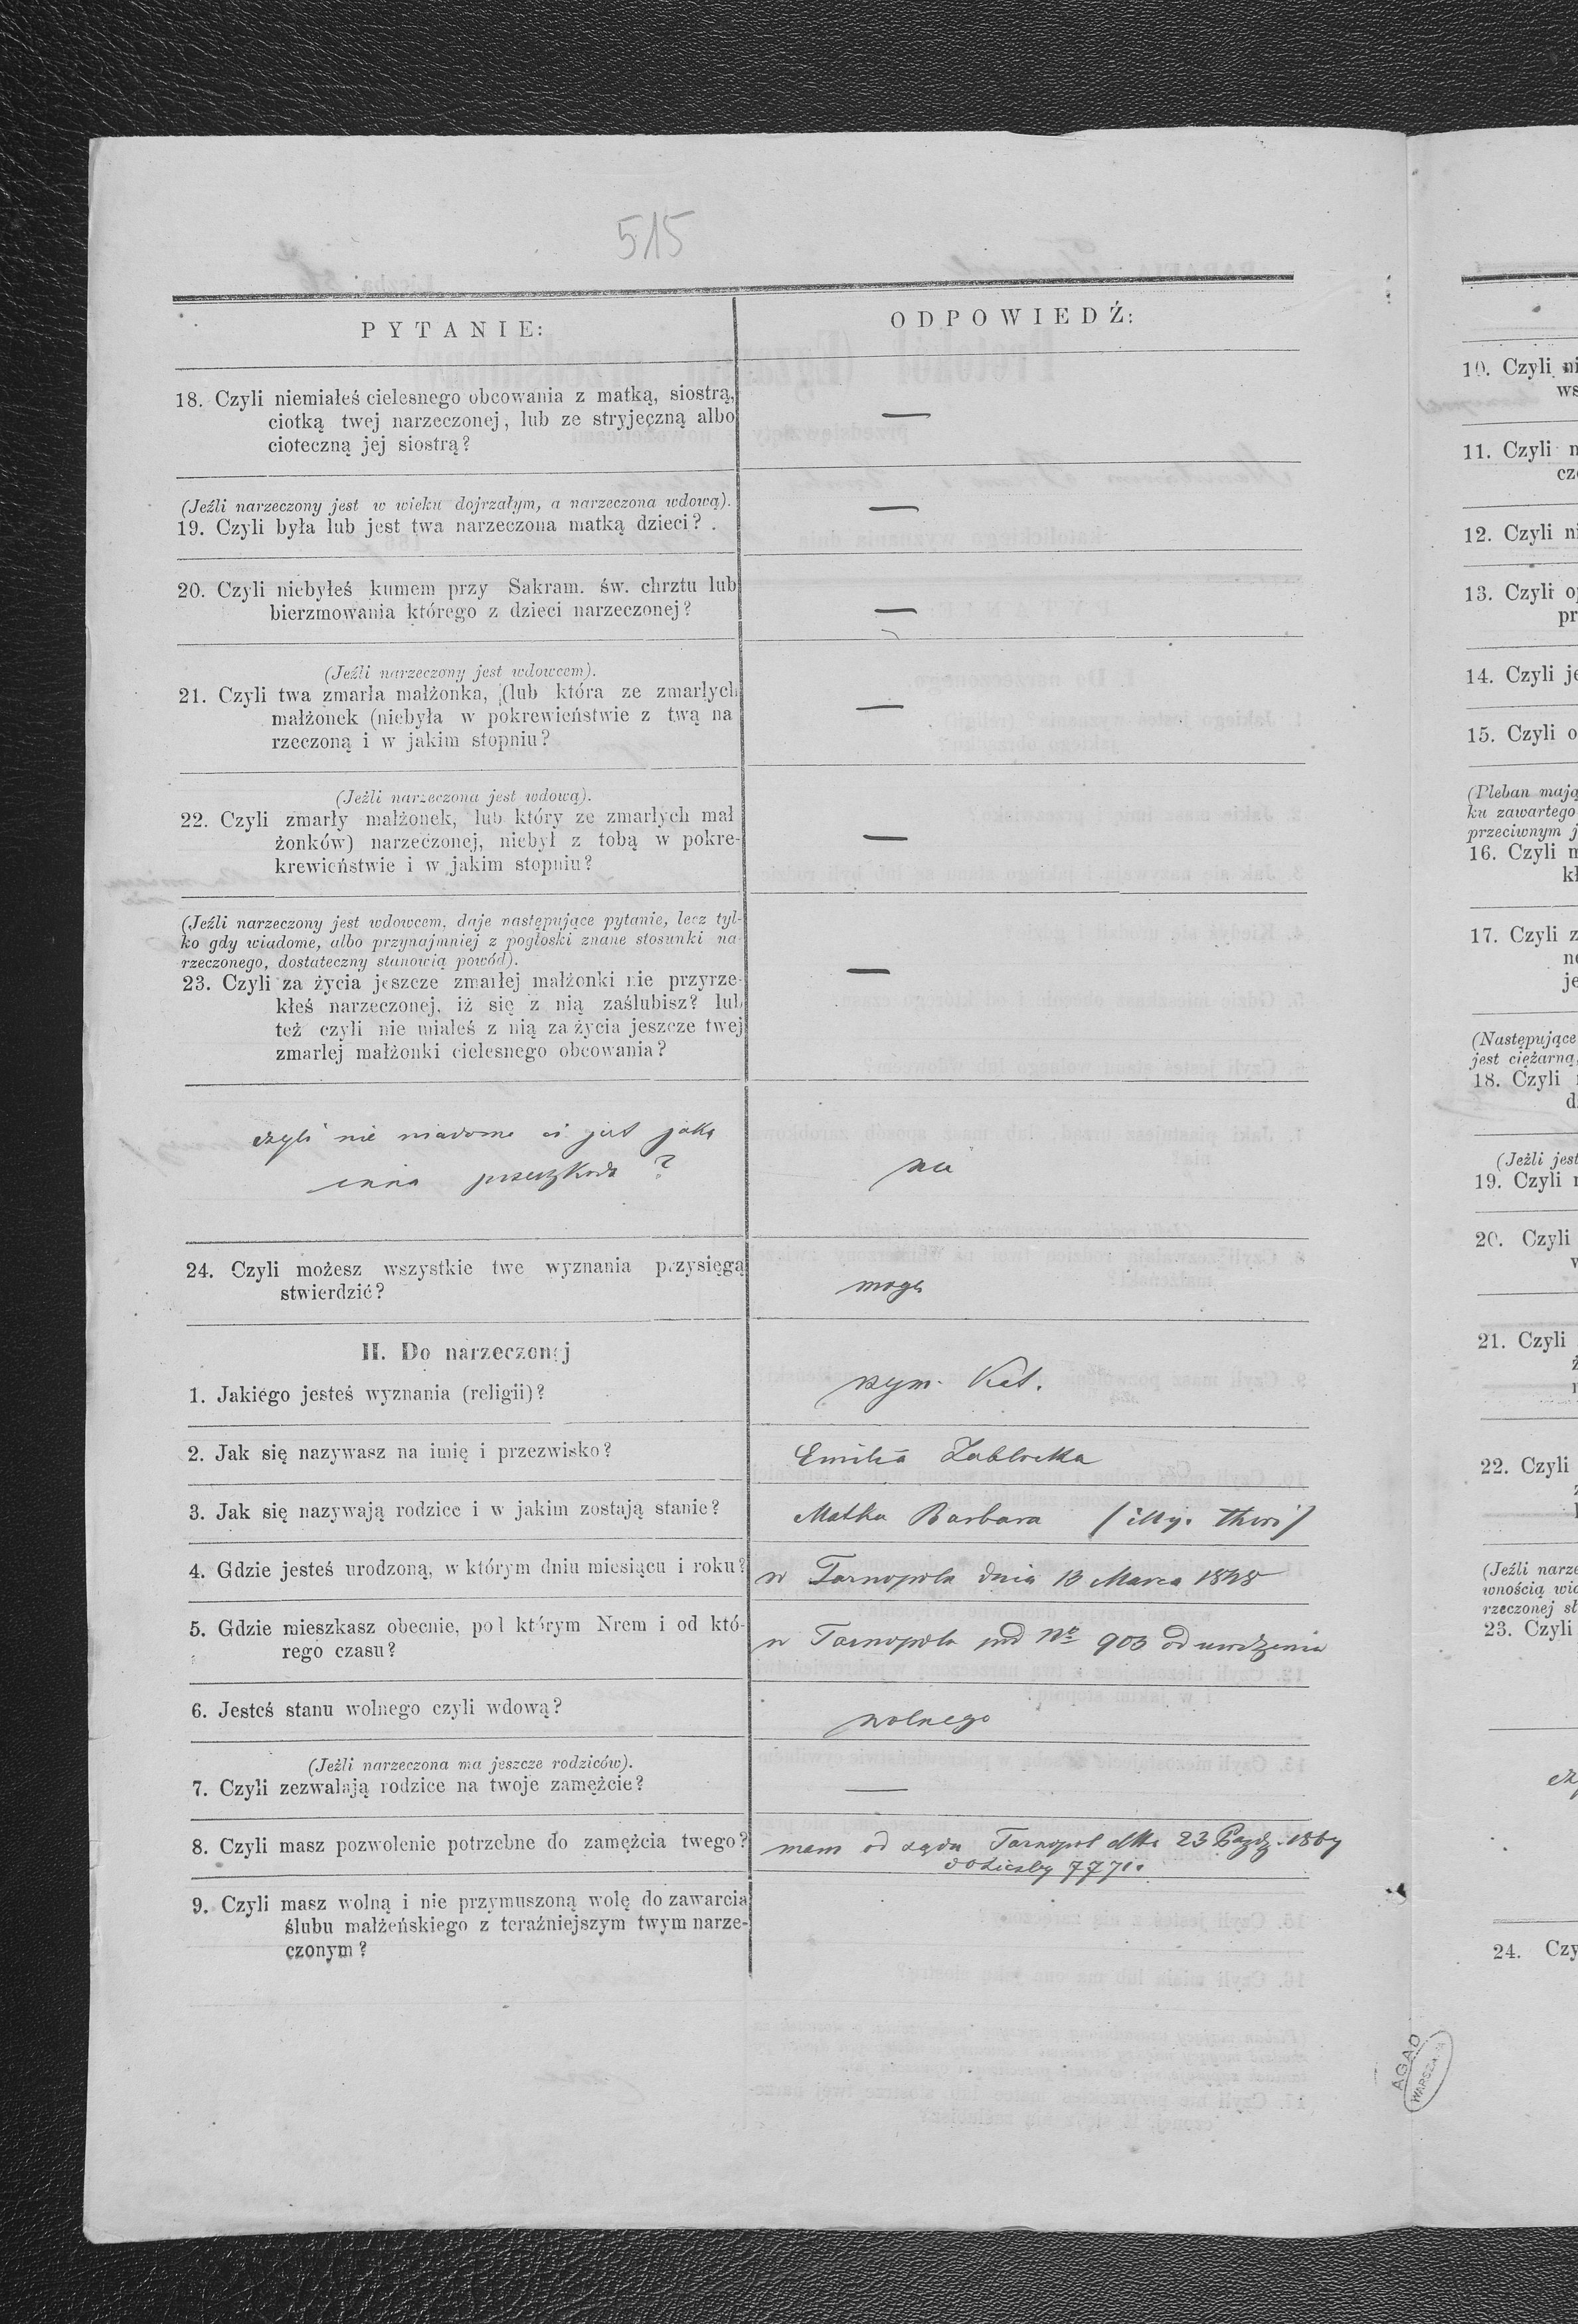 515
PYTANIE:
ODPOWIEDŹ:
18. Czyli niemiałeś cielesnego obcowania z matką, siostrą,
ciotką twej narzeczonej, lub ze stryjeczną albo
cioteczną jej siostrą?
—
(Jeźli narzeczony jest w wieku dojrzałym, a narzeczona wdową).
19. Czyli była lub jest twa narzeczona matką dzieci? .
—
20. Czyli niebyłeś kumem przy Sakram. św. chrztu lub
bierzmowania którego z dzieci narzeczonej?
—
(Jeźli narzeczony jest wdowcem).
21. Czyli twa zmarła małżonka, (lub która ze zmarłych
małżonek (niebyła w pokrewieństwie z twą na
rzeczoną i w jakim stopniu?
—
(Jeżli narzeczona jest wdową).
22. Czyli zmarły małżonek, lub który ze zmarłych mał
żonków) narzeczonej, niebył z tobą w pokre-
krewieństwie i w jakim stopniu?
—
(Jeźli narzeczony jest wdowcem, daje następujące pytanie, lecz tyl-
ko gdy wiadome, albo przynajmniej z pogłoski znane stosunki na
rzeczonego, dostateczny stanowią powód).
23. Czyli za życia jeszcze zmarłej małżonki nie przyrze-
kłeś narzeczonej, iż się z nią zaślubisz? lub
też czyli nie miałeś z nią za życia jeszcze twej
zmarłej małżonki cielesnego obcowania?
—
czyli nie wiadome ci jest jaka
inna przeszkoda ?
nie
24. Czyli możesz wszystkie twe wyznania przysięgą
stwierdzić?
mogę
II. Do narzeczonej
1. Jakiego jesteś wyznania (religii)?
rzym. Kat.
2. Jak się nazywasz na imię i przezwisko?
Emilia Zabłocka
3. Jak się nazywają rodzice i w jakim zostają stanie?
Matka Barbara / illeg. thori /
4. Gdzie jesteś urodzoną, w którym dniu miesiącu i roku?
w Tarnopolu dnia 13 Marca 1848
5. Gdzie mieszkasz obecnie, pod którym Nrem i od któ-
rego czasu?
w Tarnopolu pod Nr 903 od urodzenia
6. Jesteś stanu wolnego czyli wdową?
wolnego
(Jeźli narzeczona ma jeszcze rodziców).
7. Czyli zezwalają rodzice na twoje zamężcie?
—
8. Czyli masz pozwolenie potrzebne do zamężcia twego?
mam od sądu Tarnopol dtto 23 Pazdz. 1867
do Liczby 7771.
9. Czyli masz wolną i nie przymuszoną wolę do zawarcia
ślubu małżeńskiego z teraźniejszym twym narze-
czonym?
10. Czyli ni
ws
11. Czyli n
cz
12. Czyli ni
13. Czyli op
pr
14. Czyli je
15. Czyli o
(Pleban mają
ku zawartego
przeciwnym j
16. Czyli m
kł
17. Czyli z
n
je
(Następujące
jest ciężarną
18. Czyli
d
(Jeźli jest
19. Czyli
20. Czyli
21. Czyli
22. Czyli
(Jeźli narze
wnością wia
rzeczonej sł
23. Czyli
24. Czy
AGAD
WARSZAWA